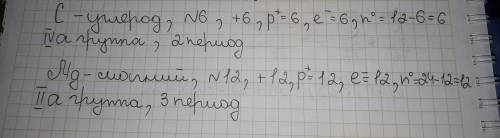 C - углерод, N6, +6, p⁺=6, e⁻=6, n⁰=12-6=6
IVа группа, 2 период
Mg - магний, N12, +12, p⁺=12, e⁻=12, n⁰=24-12=12
IIа группа, 3 период